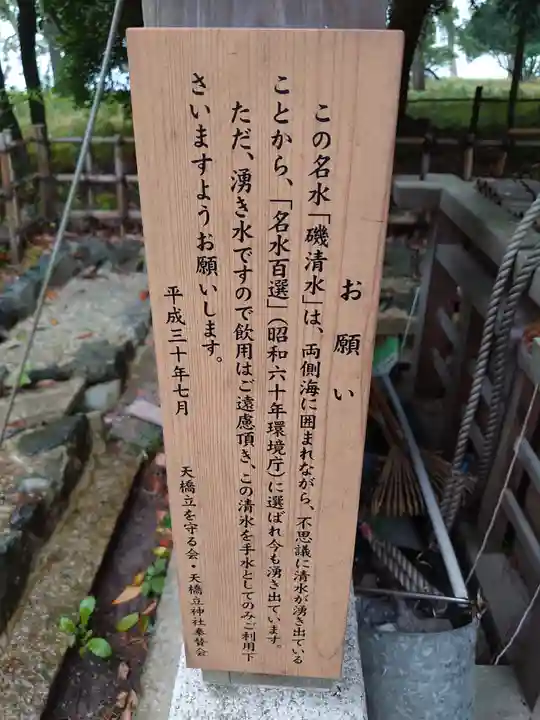 お願い
この名水「磯清水」は、両側海に囲まれながら、不思議に清水が湧き出ている
ことから、「名水百選」(昭和六十年環境庁)に選ばれ今も湧き出ています。
ただ、湧き水ですので飲用はご遠慮頂き、この清水を手水としてのみご利用下
さいますようお願いします。
平成三十年七月
天橋立を守る会・天橋立神社奉賛会